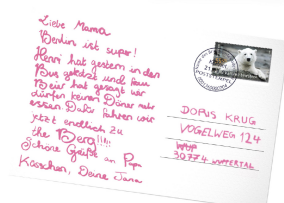 Liebe Mama
Berlin ist super!
Henri hat gestern in den
Bus gekotzt und Frau
Beier hat gesagt wir
dürfen keinen Döner mehr
essen. Dafür fahren wir
jetzt endlich zu
the Berg!!!!
Schöne Grüße an Papa
Küsschen, Deine Jana
POSTSTEMPEL
DORIS KRUG
VOGELWEG 124
30774 WUPPERTAL